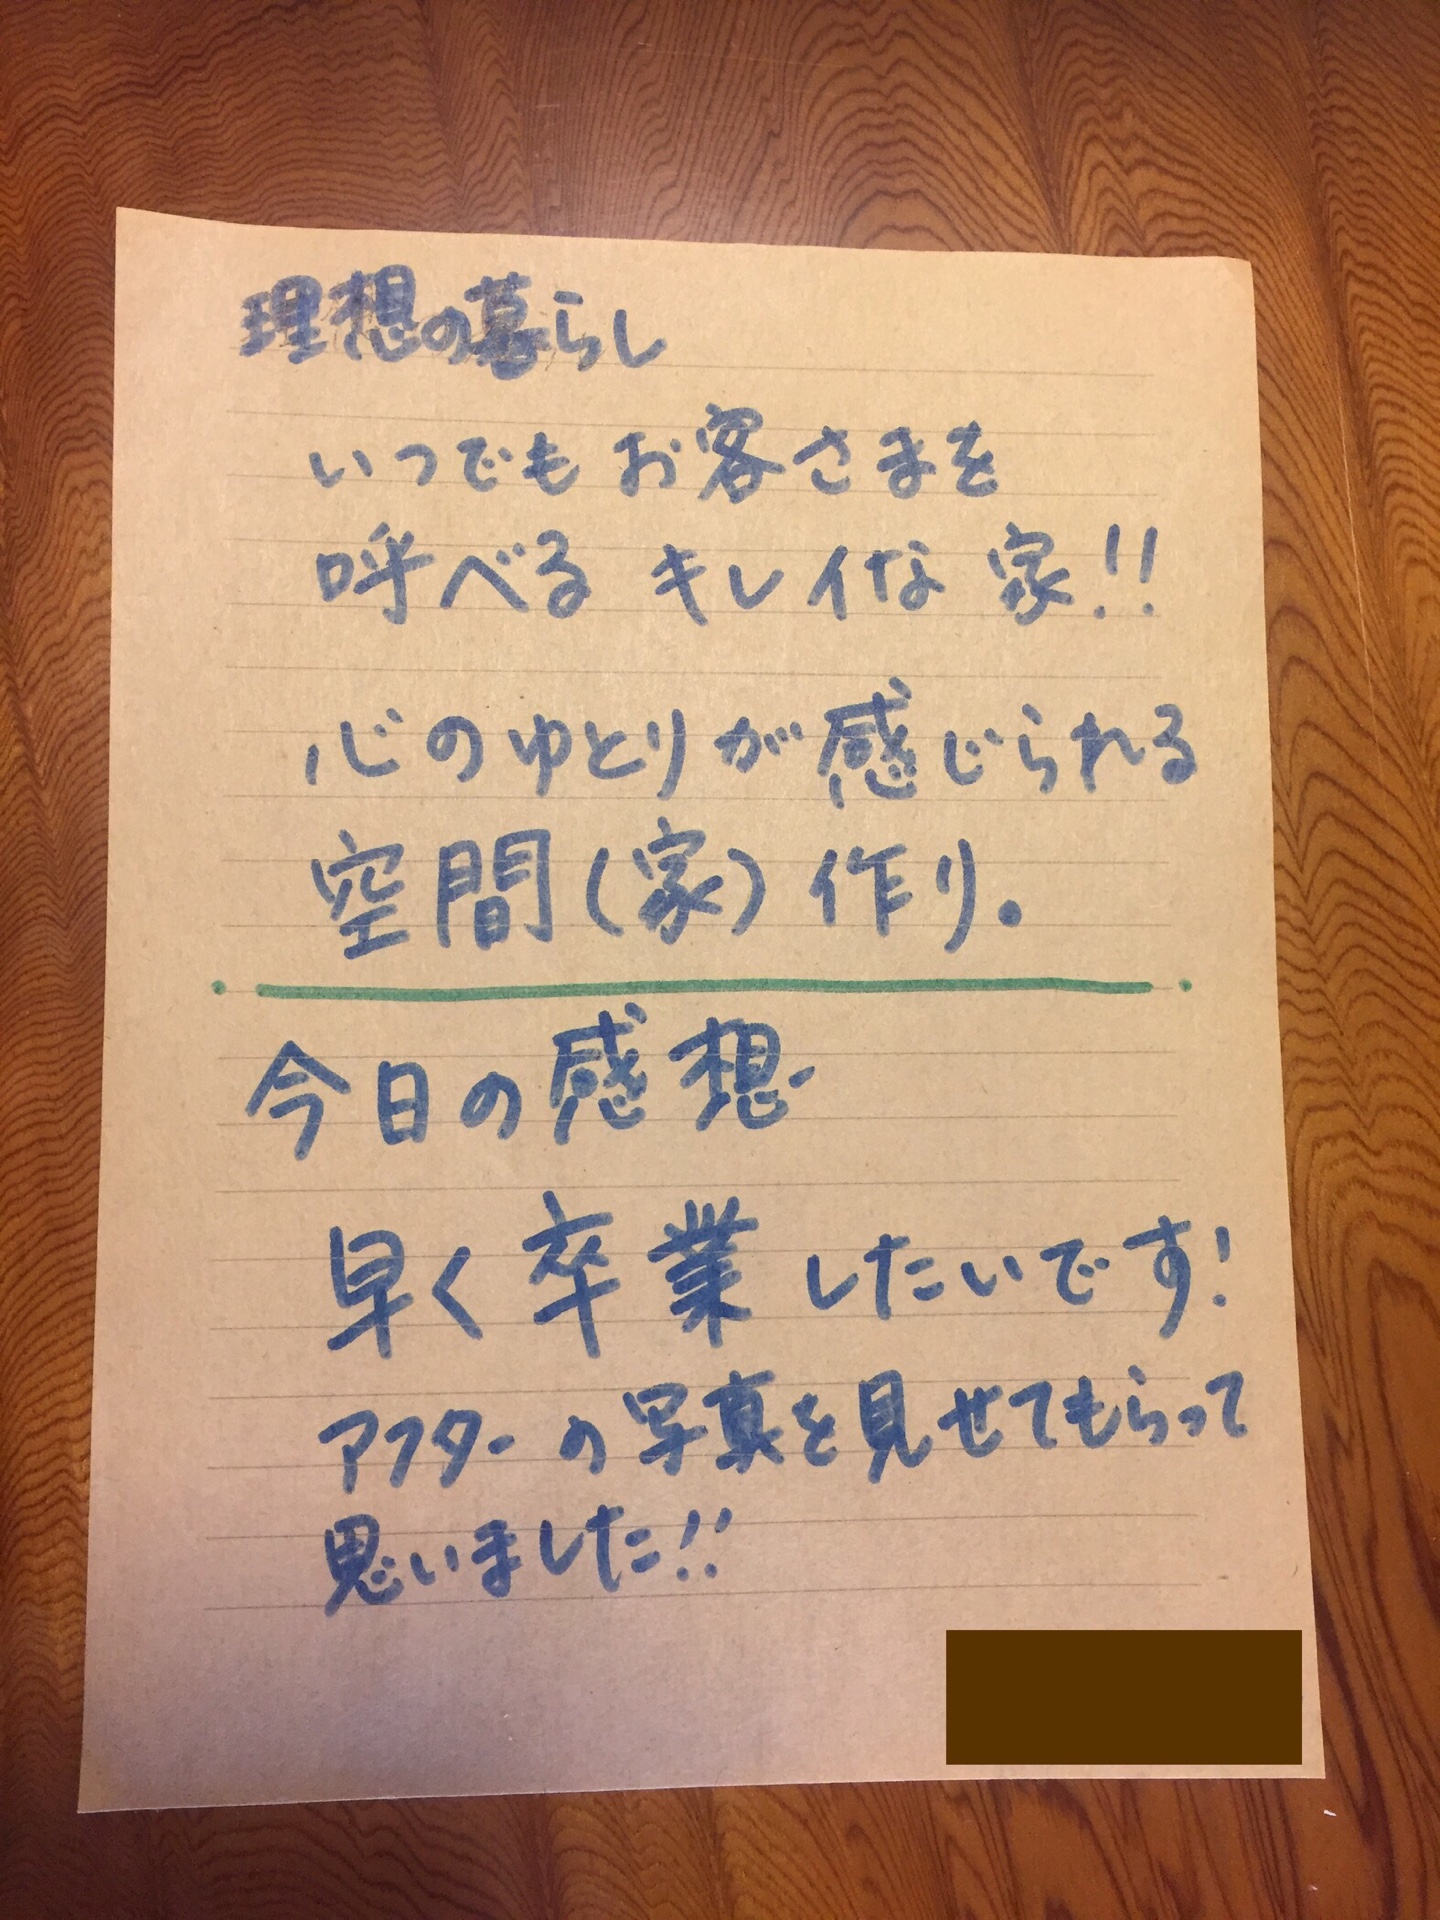 理想の暮らし
いつでもお客さまを
呼べる キレイな 家!!
心のゆとりが感じられる
空間(家)作り。
今日の感想
早く卒業したいです!
アフターの写真を見せてもらって
思いました!!